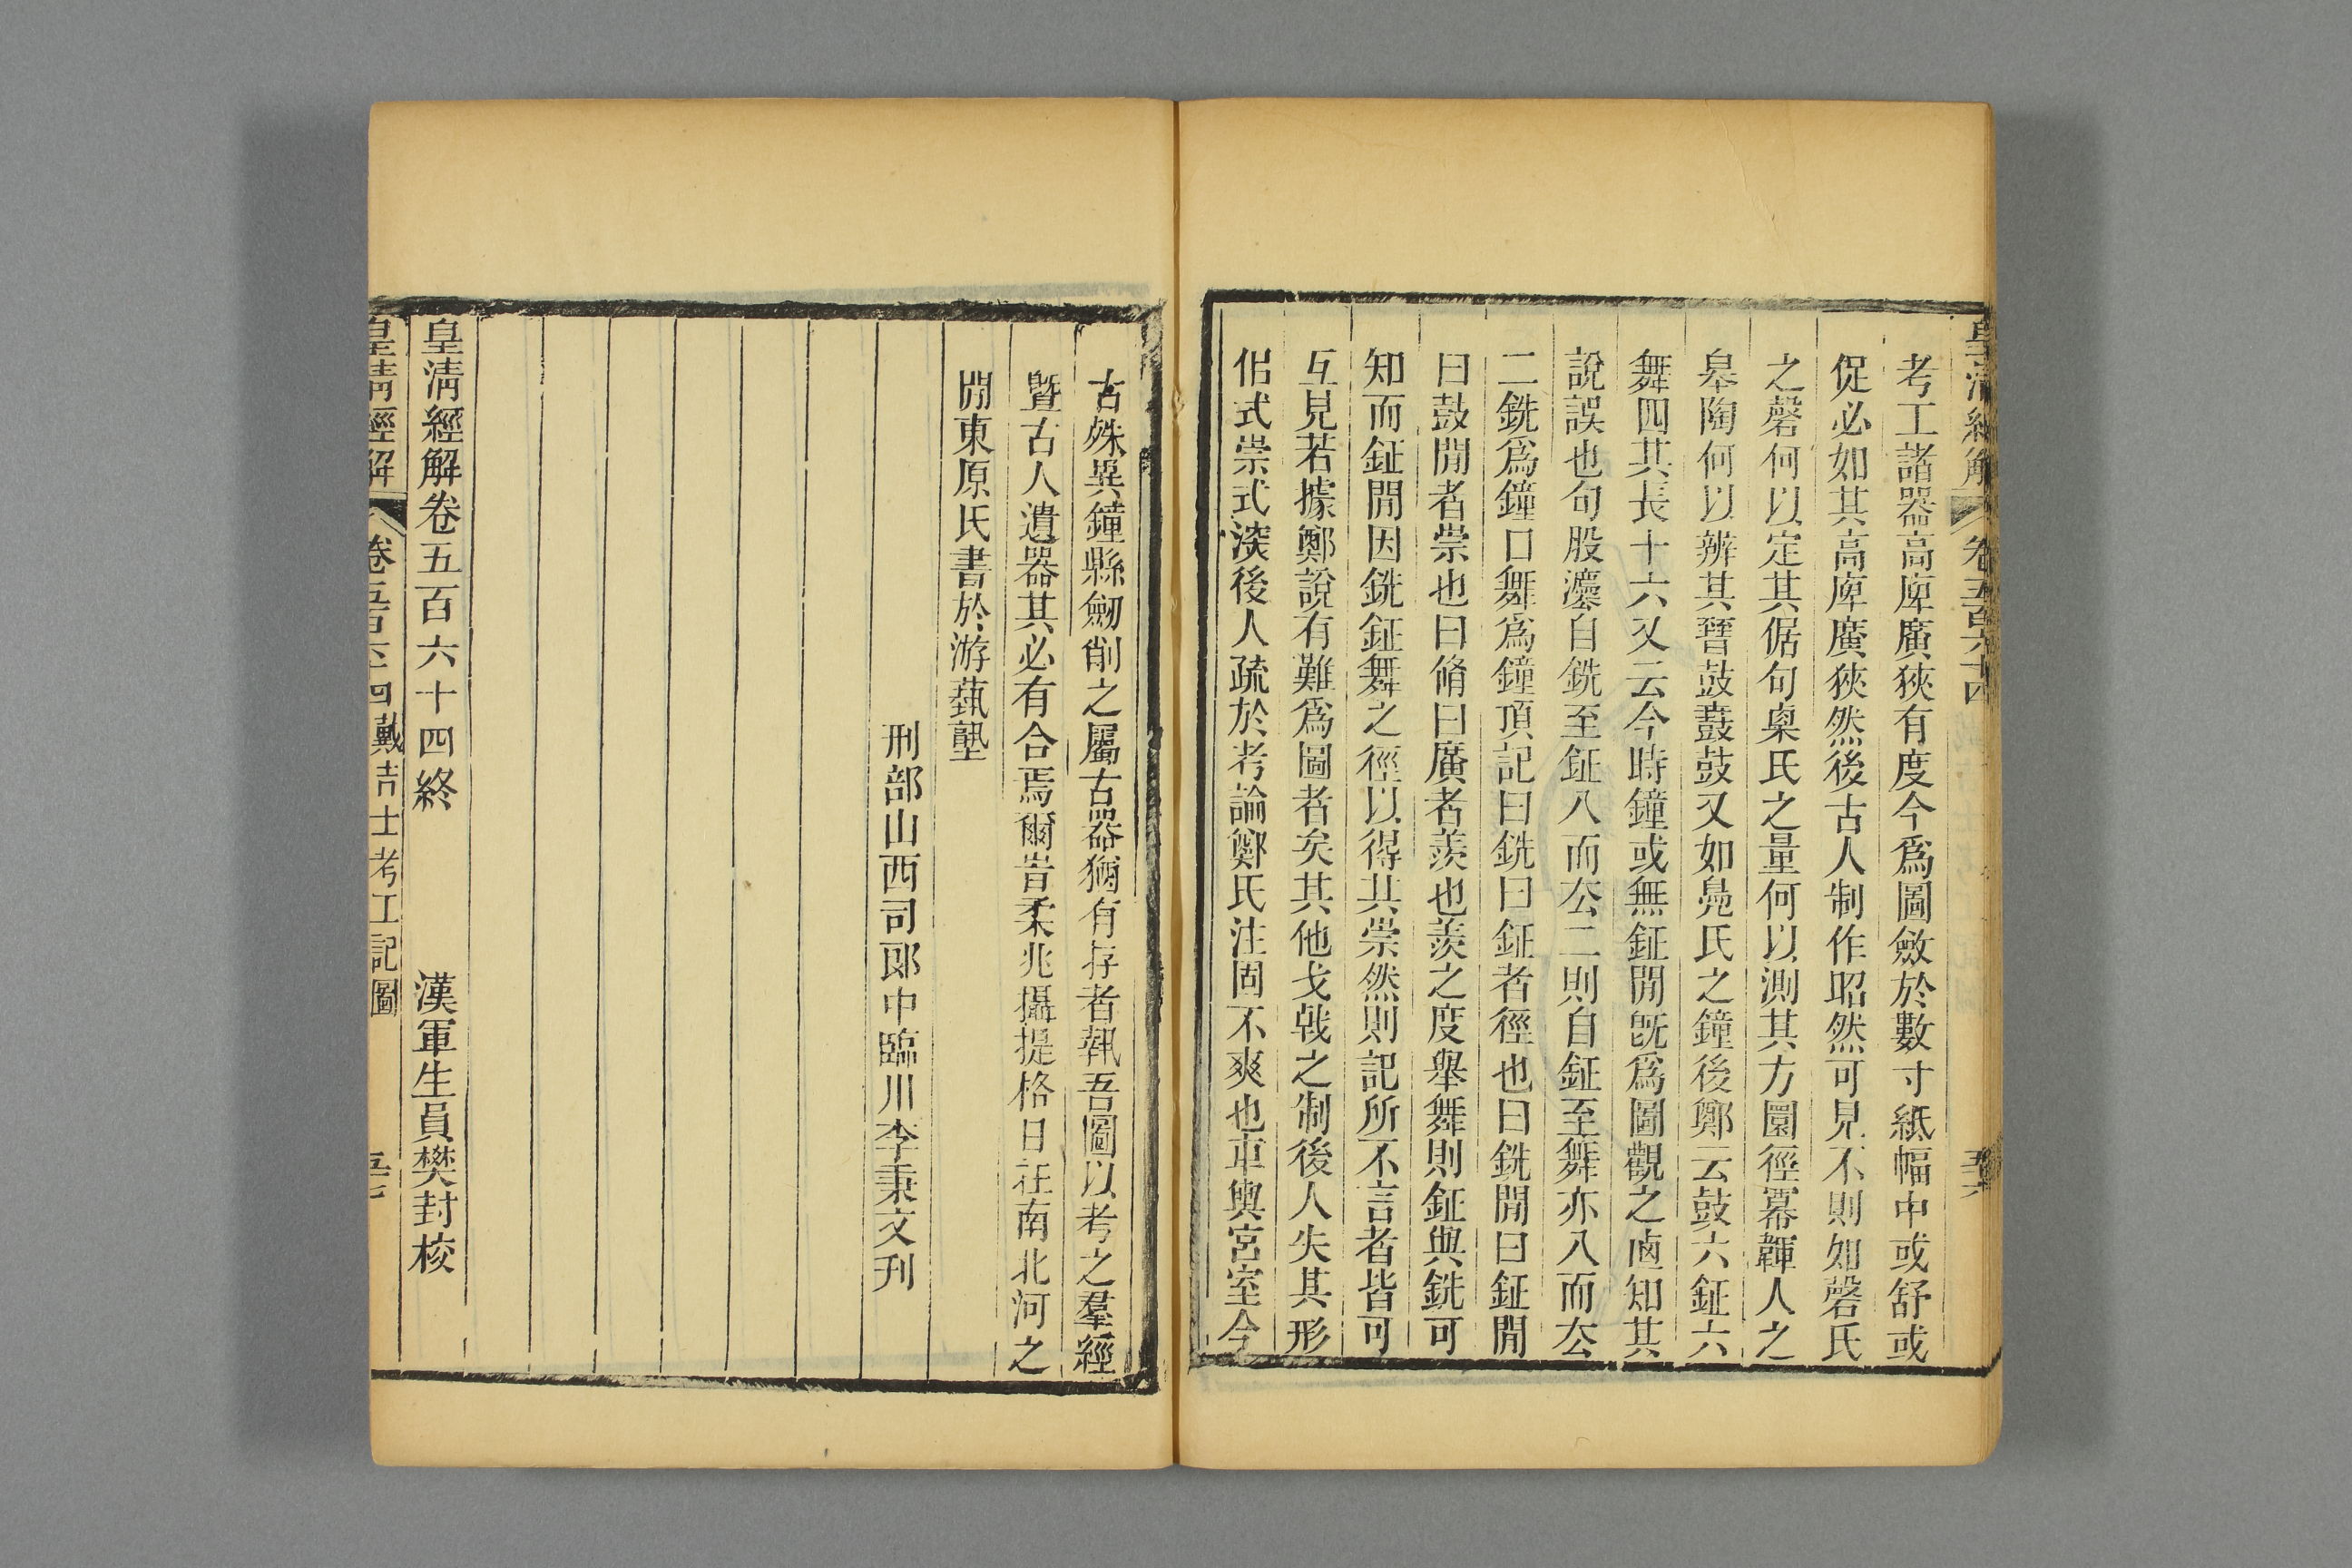 皇清經解 卷五百六十四 五六
考工諸器高庳廣狹有度今爲圖斂於數寸紙幅中或舒或
促必如其高庳廣狹然後古人制作昭然可見不則如磬氏
之磬何以定其倨句㮚氏之量何以測其方圜徑冪韗人之
皋陶何以辨其晉鼓鼖鼓又如鳧氏之鐘後鄭云鼓六鉦六
舞四其長十六又云今時鐘或無鉦閒旣爲圖觀之鹵知其
說誤也句股灋自銑至鉦八而厺二則自鉦至舞亦八而厺
二銑爲鐘口舞爲鐘頂記曰銑曰鉦者徑也曰銑閒曰鉦閒
曰鼓閒者崇也曰脩曰廣者羨也羨之度舉舞則鉦與銑可
知而鉦閒因銑鉦舞之徑以得其崇然則記所不言者皆可
互見若據鄭說有難爲圖者矣其他戈戟之制後人失其形
佀式崇式㴱後人疏於考論鄭氏注固不爽也車輿宮室今
古殊異鐘縣劒削之屬古器猶有存者執吾圖以考之羣經
曁古人遺器其必有合焉爾旹柔兆攝提格日在南北河之
閒東原氏書於游蓺塾
刑部山西司郎中臨川李秉文刊
皇清經解卷五百六十四終 漢軍生員樊封校
皇清經解 卷五百六十四 戴吉士考工記圖 五七